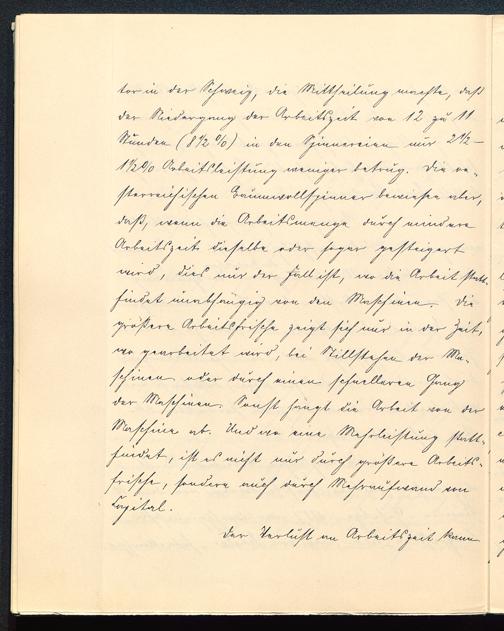 tor in der Schweiz, die Mittheilung machte, daß
der Niedergang der Arbeitszeit von 12 zu 11
Stunden (8½%) in den Spinnereien nur 2½–
1½% Arbeitsleistung weniger betrug. Die oe-
sterreichischen Baumwollspinner bewiesen aber,
daß, wenn die Arbeitsmenge durch mindere
Arbeitszeit dieselbe oder sogar gesteigert
wird, dies nur der Fall ist, wo die Arbeit statt-
findet unabhängig von den Maschinen. Die
größere Arbeitsfrische zeigt sich nur in der Zeit,
wo gearbeitet wird, bei Stillstehen der Ma-
schinen oder durch einen schnelleren Gang
der Maschinen. Sonst hängt die Arbeit von der
Maschine ab. Und wo eine Mehrleistung statt-
findet, ist es nicht nur durch größere Arbeits-
frische, sondern auch durch Mehraufwand von
Capital.
Der Verlust an Arbeitszeit kann